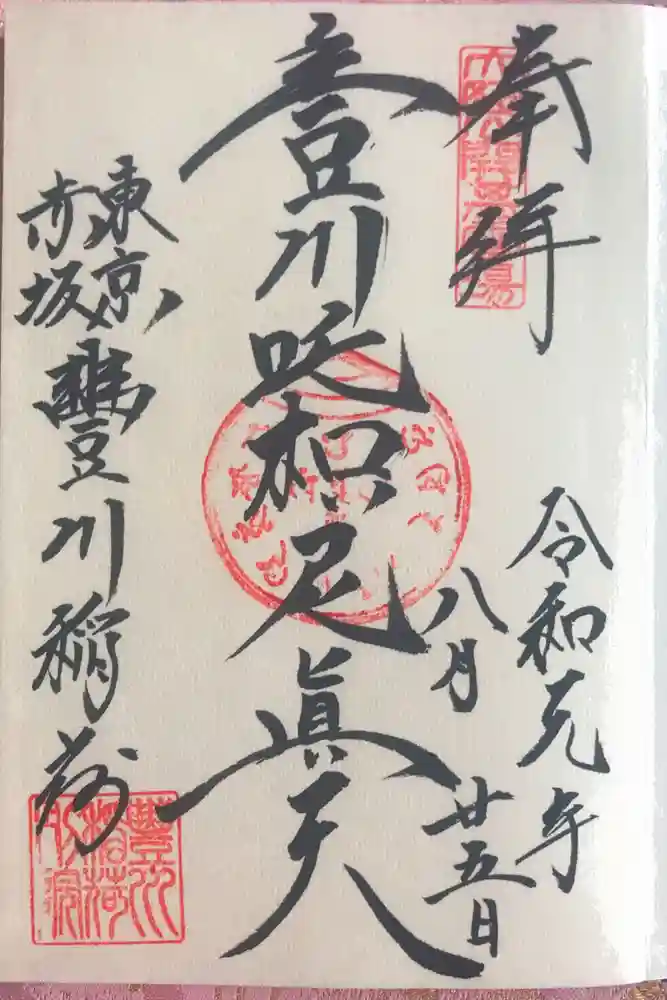 奉拝
令和元年
八月廿五日
豊川吒枳尼眞天
東京
赤坂
豐川稲荷
豐川
稲荷
別院